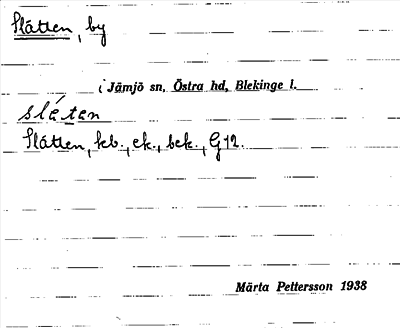 Slätten, by
i Jämjö sn, Östra hd, Blekinge l.
slétan
Slätten, kb., ek., bek., G12.
Märta Pettersson 1938